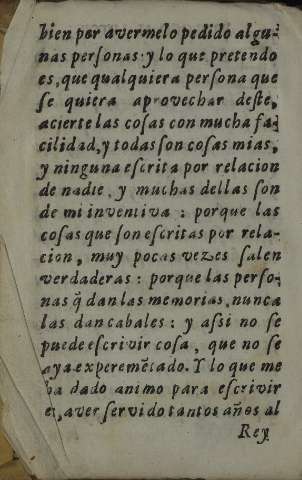 bien por avermelo pedido algu-
nas personas: y lo que pretendo
es, que qualquiera persona que
se quiera aprovechar deste,
acierte las cosas con mucha fa-
cilidad, y todas son cosas mias,
y ninguna escrita por relacion
de nadie, y muchas dellas son
de mi inventiva: porque las
cosas que son escritas por rela-
cion, muy pocas vezes salen
verdaderas: porque las perso-
nas q̃ dan las memorias, nunca
las dan cabales: y assi no se
puede escrivir cosa, que no se
aya experemẽtado. Y lo que me
ha dado animo para escrivir
es, aver servido tantos años al
Rey